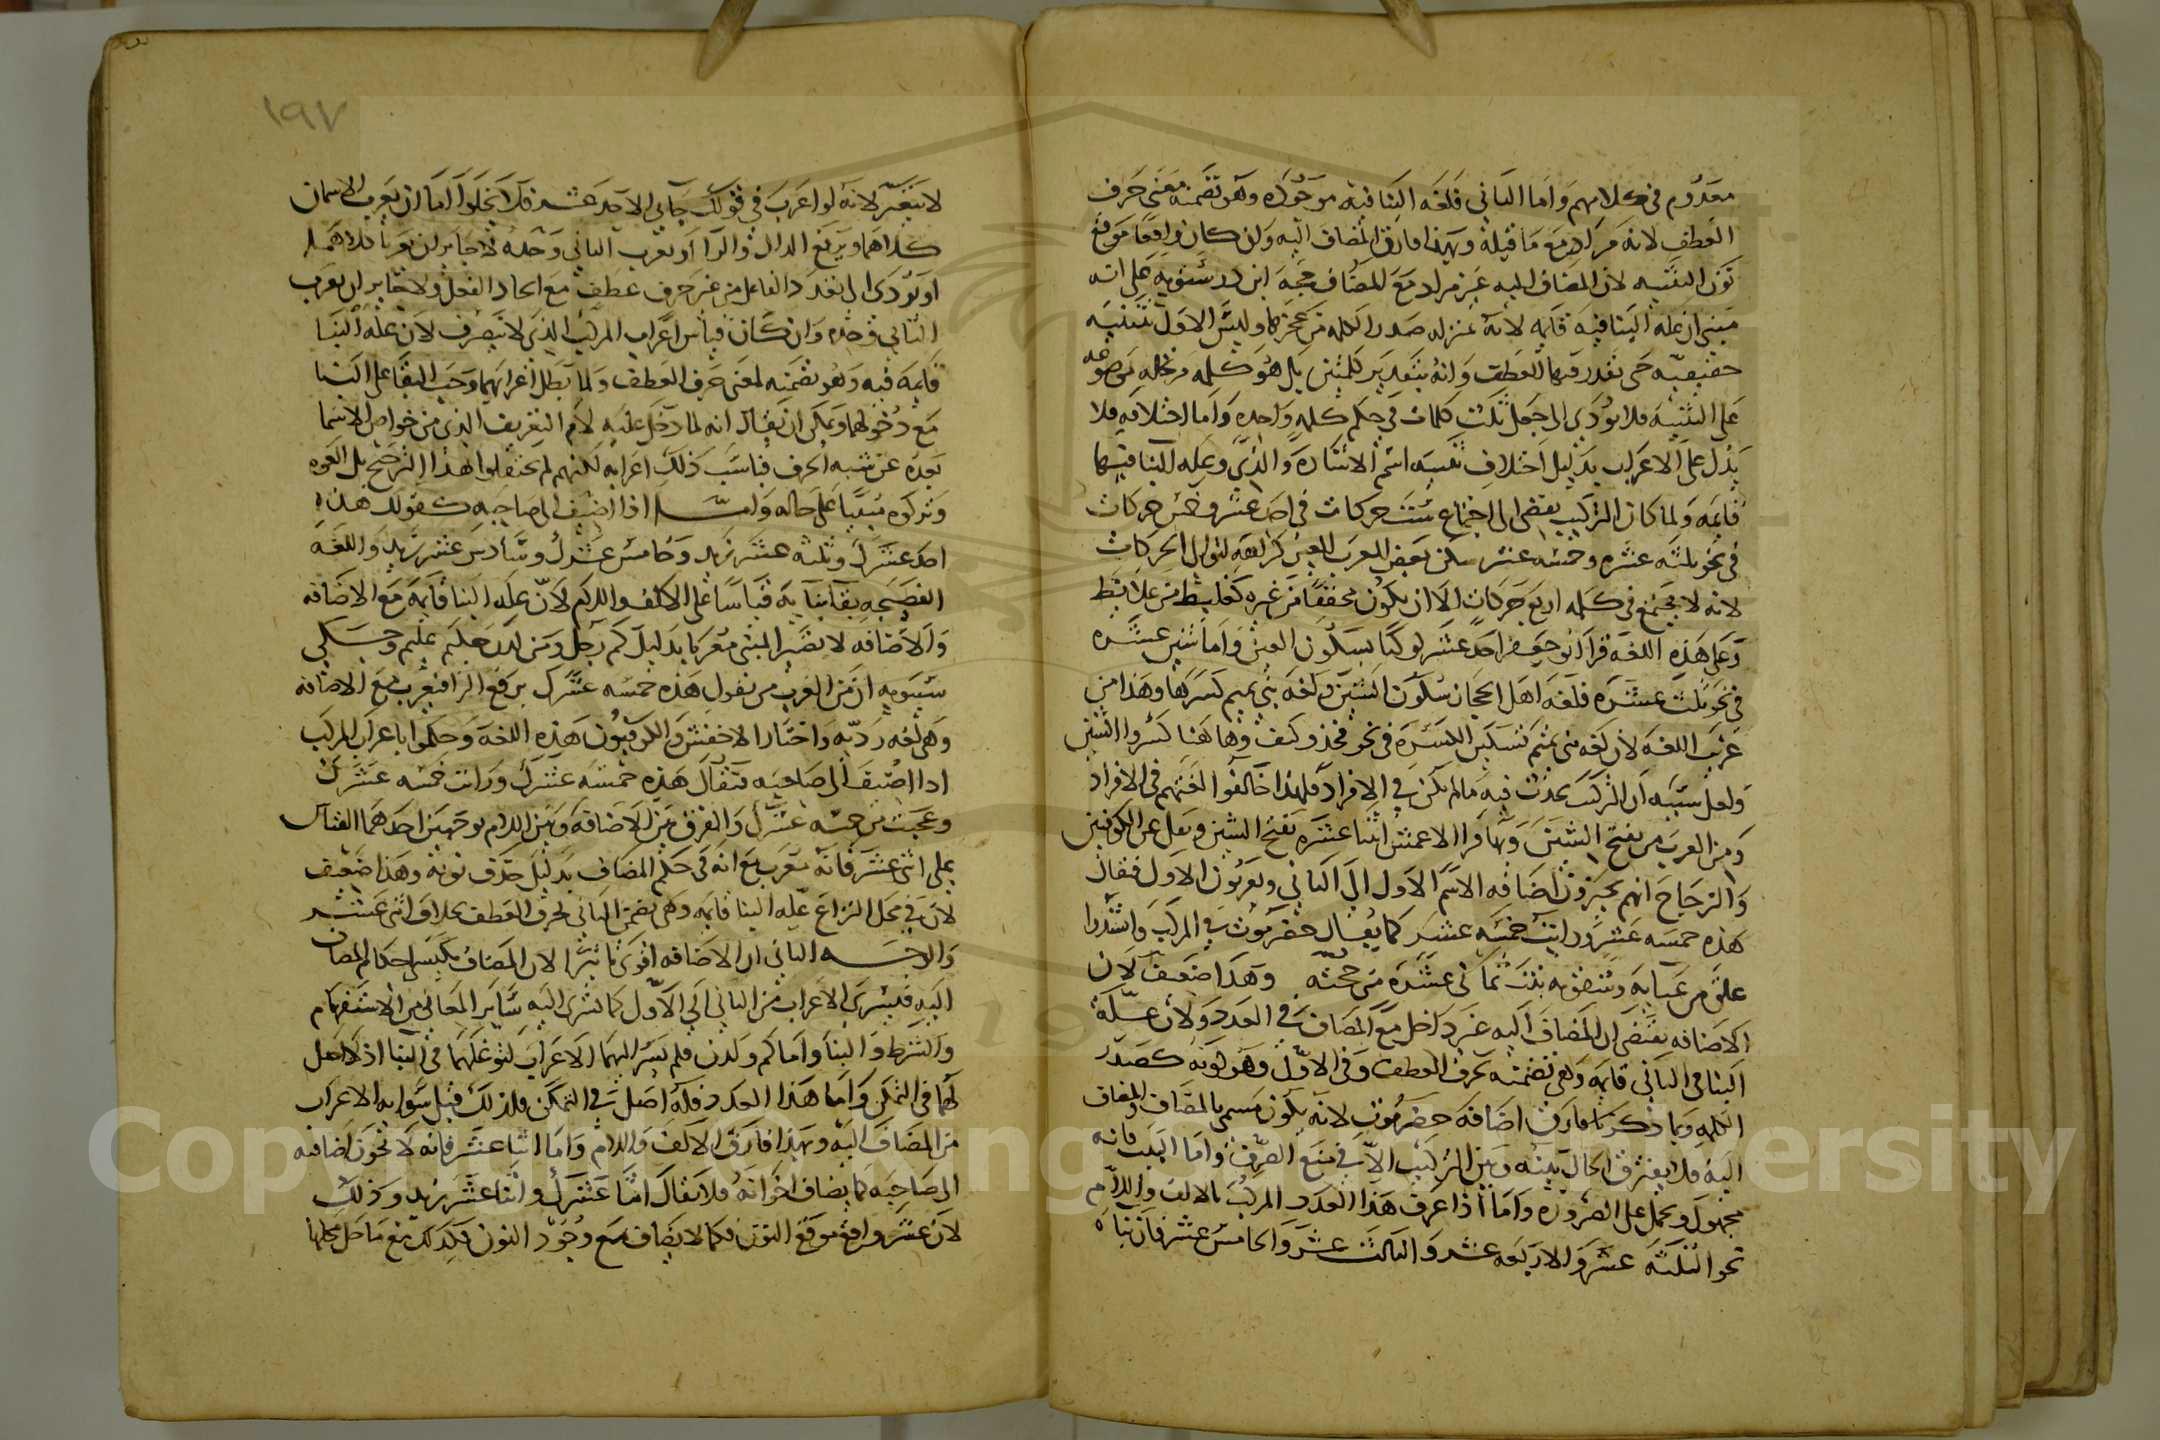 معدوم في كلامهم واما الثاني فلغه البنا فيه موجوده وهو تضمنه معنى حرف
العطف لانه مراد مع ما قبله وبهذا فارق المضاف اليه ولن كان واقعا موقع
نون التثنيه لان المضاف اليه غير مراد مع المضاف حجة ابن درستويه على انه
مبني ان علة البنا فيه قايمه لانه بمنزله صدر الكلمه من عجزها وليس الاول بتثنيه
حقيقيه حتى نقدر فيها العطف وانه بتقدير كلمتين بل هو كلمه مرتجله موضوعه
على التثنيه فلا يودي الى جعل ثلث كلمات في حكم كلمه واحده واما اختلافه فلا
يدل على الاعراب بدليل اختلاف تثنيه اسم الاشارة والذي وعلة البنا فيهما
قايمه ولما كان التركيب يفضي الى اجتماع ست حركات في احد عشر وخمس حركات
في نحو ثلثه عشره وخمسه عشر سكن بعض العرب العين كراهة لتوالي الحركات
لانه لا يجتمع في كلمه اربع حركات الا ان يكون مخففا من غيره كعلبط من علابط
وعلى هذه اللغه قرا ابو جعفر احد عشر كوكبا بسكون العين واما شين عشره
في نحو ثلث عشره فلغه اهل الحجاز سكون الشين ولغه بني تميم كسرها وهذا من
غريب اللغه لان لغه بني تميم تسكين الكسره في نحو فخذ وكتف وها هنا كسروا الشين
ولعل سببه ان التركيب يحدث فيه ما لم يكن في الافراد فلهذا خالفوا لغتهم في الافراد
ومن العرب من يفتح الشين وبها قرا الاعمش اثنتا عشره بفتح الشين ونقل عن الكوفيين
والزجاج انهم يجيزون اضافه الاسم الاول الى الثاني ويعربون الاول فقال
هذه خمسه عشر ورايت خمسه عشر كما يقال حضرموت في المركب وانشدوا
علق من عنايه وشقوته بنت ثماني عشره من حجته وهذا ضعيف لان
الاضافه يقتضي ان المضاف اليه غير داخل مع المضاف في العدد ولان علة
البنا في الثاني قايمه وهي تضمنه حرف العطف وفي الاول وهو كونه كصدر
الكلمه وبما ذكرنا فارق اضافه حضرموت لانه يكون مسمى بالمضاف والمضاف
اليه فلا يفترق الحال بينه وبين التركيب الا في منع الصرف واما البيت فانه
مجهول ويحمل على الضروره واما اذا عرف هذا العدد المركب بالالف واللام
نحو الثلثه عشر والاربعه عشر والثالث عشر والخامس عشر فان بناه
١٩٧
لا يتغير لانه لو اعرب في قولك جاني الاحد عشر فلا يخلوا اما ان يعرب الاسمان
كلاهما ويرفع الدال والرا او يعرب الثاني وحده لا جايز ان يعربا كلاهما
او يودى الى تعدد الفاعل من غير حرف عطف مع اتحاد الفعل ولا جايز ان يعرب
الثاني وحده وان كان قياس اعراب المركب الذي لا ينصرف لان علة البنا
قايمه فيه وهو تضمنه لمعنى حرف العطف ولما بطل اعرابهما وجب البقا على البنا
مع دخولهما ويمكن ان يقال انه لما دخل عليه لام التعريف الذي من خواص الاسما
بعده عن شبه الحرف فناسب ذلك اعرابه لكنهم لم يحفلوا هذا الترجيح بل الغوه
وتركوه مبنيا على حاله ولما اذا اضيف الى صاحبه كقولك هذا
احد عشرك وثلثه عشر زيد وخامس عشرك وسادس عشر زيد واللغه
الفصيحه بقا بنايه قياسا على الالف واللام لان علة البنا قايمه مع الاضافه
والاضافه لا تصير المبني معربا بدليل كم رجل ومن لدن حكيم عليم وحكى
سيبويه ان من العرب من يقول هذه خمسه عشرك برفع الرا فيعرب مع الاضافه
وهي لغه رديه واختار الاخفش والكوفيون هذه اللغه وحكموا باعراب المركب
اذا اضيف الى صاحبه فيقال هذه خمسه عشرك ورايت خمسه عشرك
وعجبت من خمسه عشرك والفرق بين الاضافه وبين اللام بوجهين احدهما القياس
على اثنى عشر فانه معرب مع انه في حكم المضاف بدليل حذف نونه وهذا ضعيف
لان في محل النزاع علة البنا قايمه وهي تضمن الثاني لحرف العطف بخلاف اثنى عشر
والوجـه الثاني ان الاضافه اقوى تاثيرا لان المضاف يكتسى احكام المضاف
اليه فيسرى الاعراب من الثاني الى الاول كما تسرى اليه ساير المعاني من الاستفهام
والشرط والبنا واما كم ولدن فلم يسر اليهما الاعراب لتوغلهما في البنا اذ لا اصل
لهما في التمكن واما هذا العدد فله اصل في التمكن فلذلك قبل سرايه الاعراب
من المضاف اليه وبهذا فارق الالف واللام واما اثنا عشر فانه لا يجوز اضافته
الى صاحبه كما يضاف اخواته فلا يقال اثنا عشرك واثنا عشر زيد وذلك
لان عشر واقع موقع النون فكما لا يضاف مع وجود النون فكذلك مع ما حل محلها
Copy King University